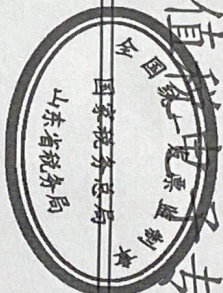 全国统一发票监制章
国家税务总局
山东省税务局